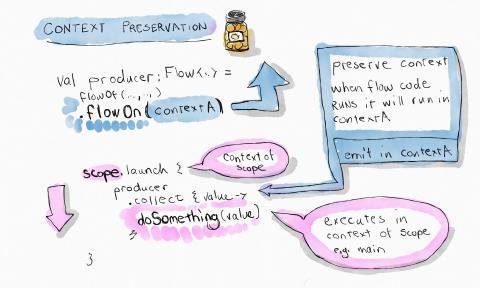 CONTEXT PRESERVATION
val producer: Flow<..> =
flowOf(..., ...)
.flowOn(contextA)
preserve context
when flow code
RUNS it will run in
contextA
emit in contextA
scope.launch {
context of
scope
producer
.collect { value ->
doSomething(value)
}
executes in
context of scope
e.g. main
}